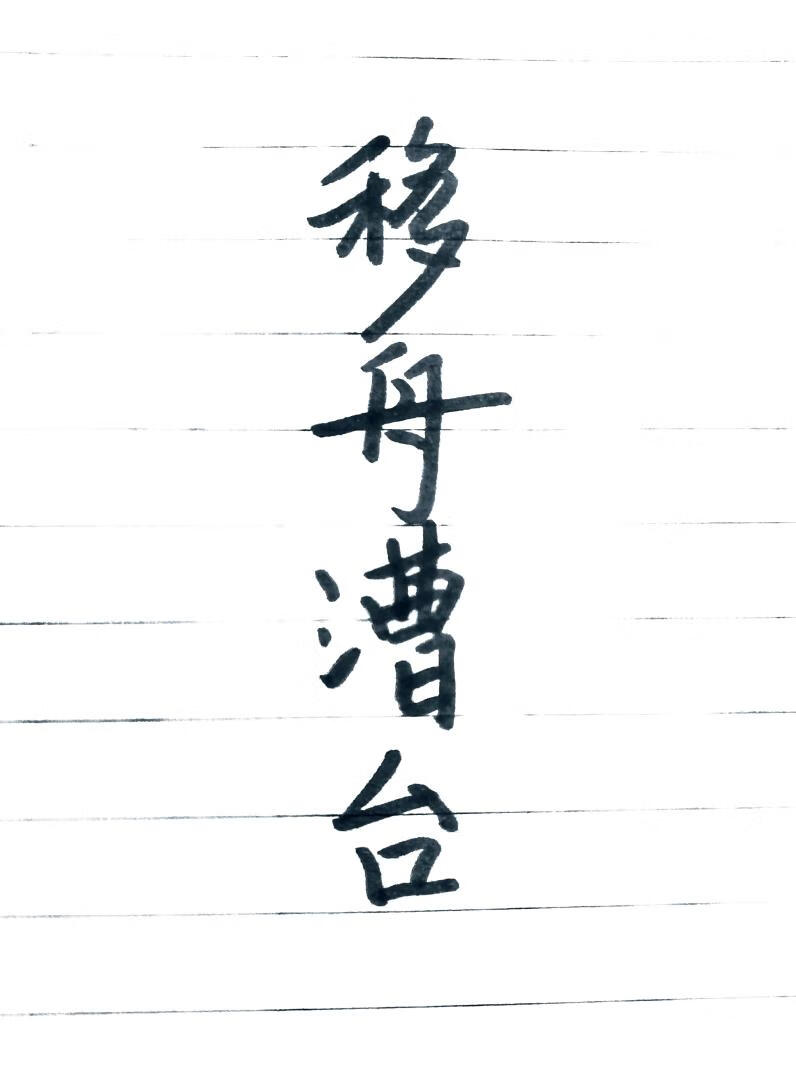 移舟漕台